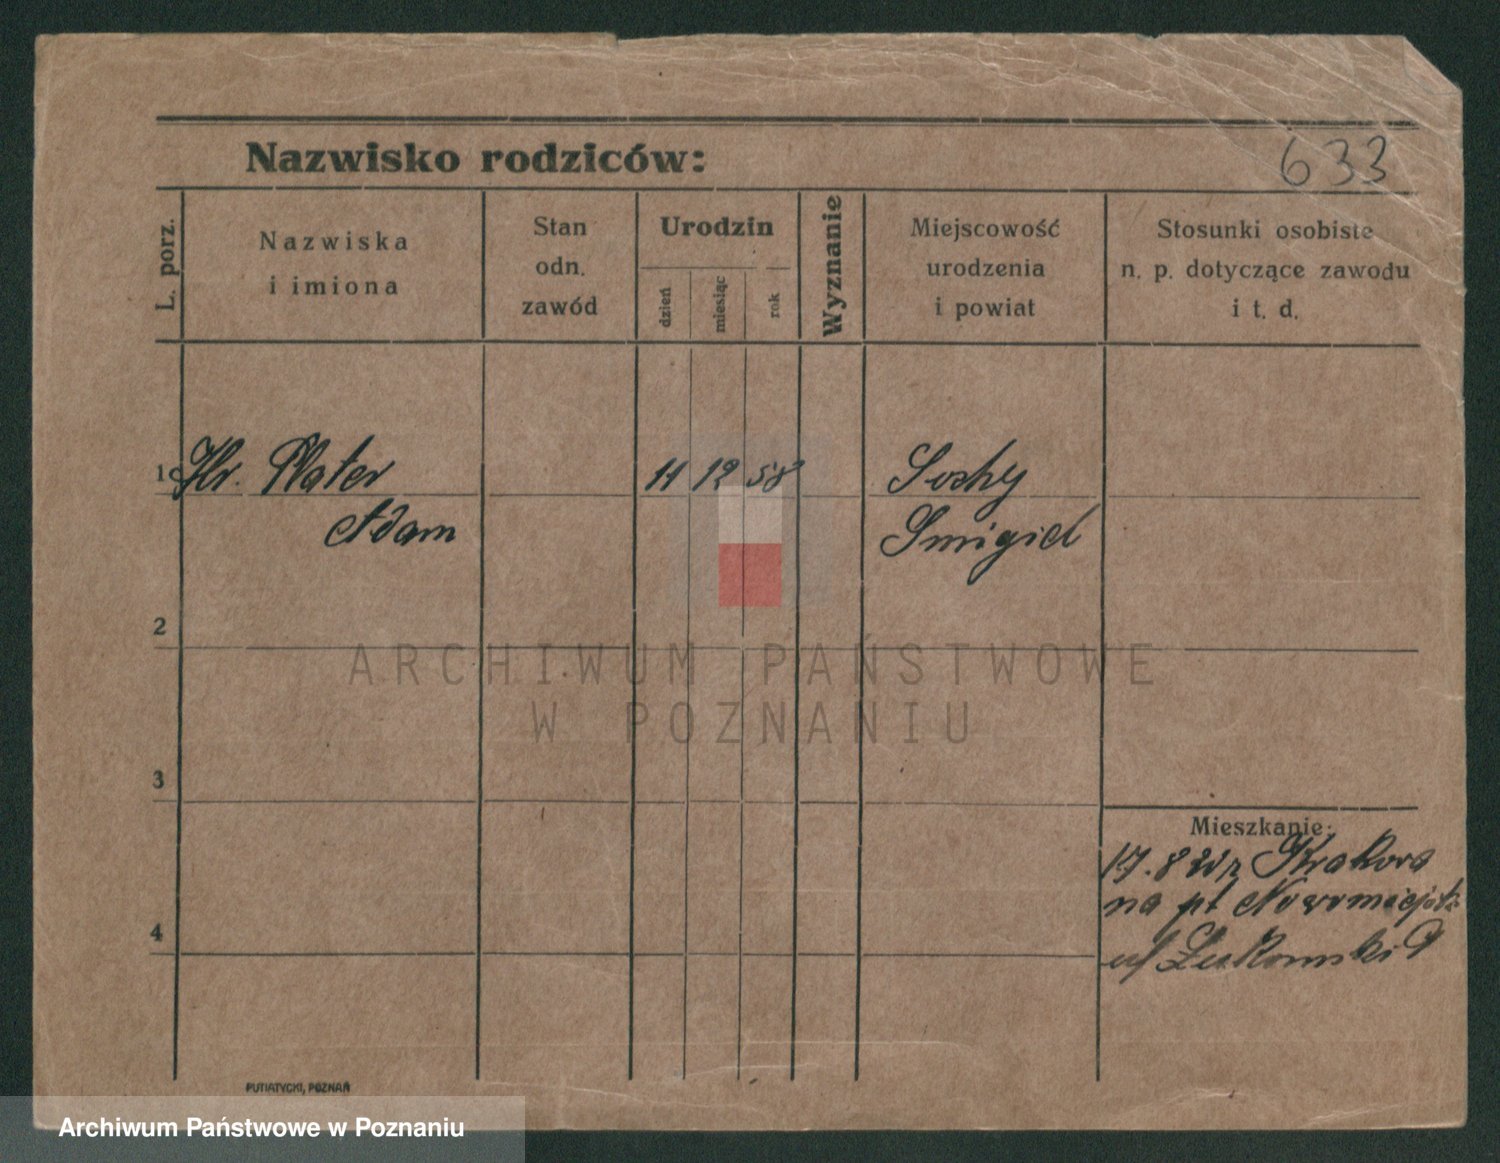 Nazwisko rodziców:
633
L. porz.
Nazwiska
i imiona
Stan
odn.
zawód
Urodzin
dzień
miesiąc
rok
Wyznanie
Miejscowość
urodzenia
i powiat
Stosunki osobiste
n. p. dotyczące zawodu
i t. d.
1 Hr. Plater 11 12 58
Adam Smigiel
2
ARCHIWUM PAŃSTWOWE
W POZNANIU
3
Mieszkanie:
17.8 Krakowa
na pt
4
ul
PUTIATYCKI, POZNAŃ
Archiwum Państwowe w Poznaniu